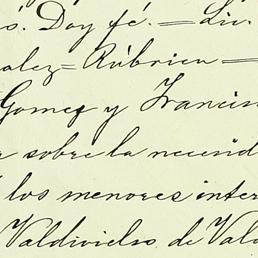 s. Doy fé. = Lic.
alez = Rúbrica =
Gomez y Francis
r sobre la necesid
los menores inter
Valdivielso de Val